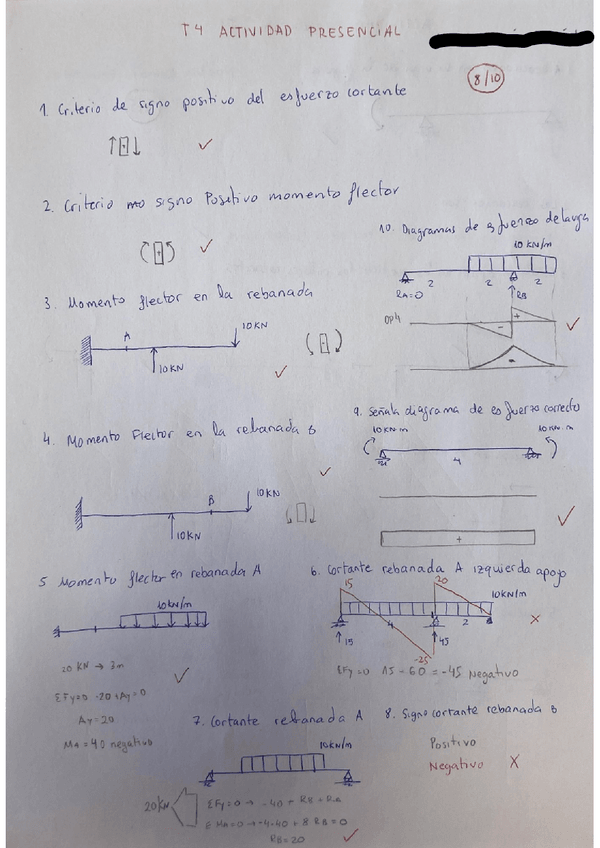 T4 ACTIVIDAD PRESENCIAL
8/10
1. Criterio de signo positivo del esfuerzo cortante
2. Criterio signo Positivo momento flector
3. Momento flector en la rebanada
A
10 KN
10 KN
4. Momento Flector en la rebanada B
B
10 KN
10 KN
5 Momento flector en rebanada A
10 kN/m
20 KN → 3m
ΣFy=0 -20+Ay=0
Ay=20
MA=40 negativo
10. Diagramas de esfuerzo de la viga
10 KN/m
2 2 2
RA=0
RB
+
-
-
9. Señala diagrama de esfuerzo correcto
10KN·m
10KN·m
4
+
6. Cortante rebanada A izquierda apoyo
15
20
10KN/m
4
2
15
45
-25
ΣFy=0 15-60=-45 Negativo
7. Cortante rebanada A
10KN/m
20KN
ΣFy=0 → -40+RB+RA
ΣMA=0 → -4·40+8RB=0
RB=20
8. Signo cortante rebanada B
Positivo
Negativo